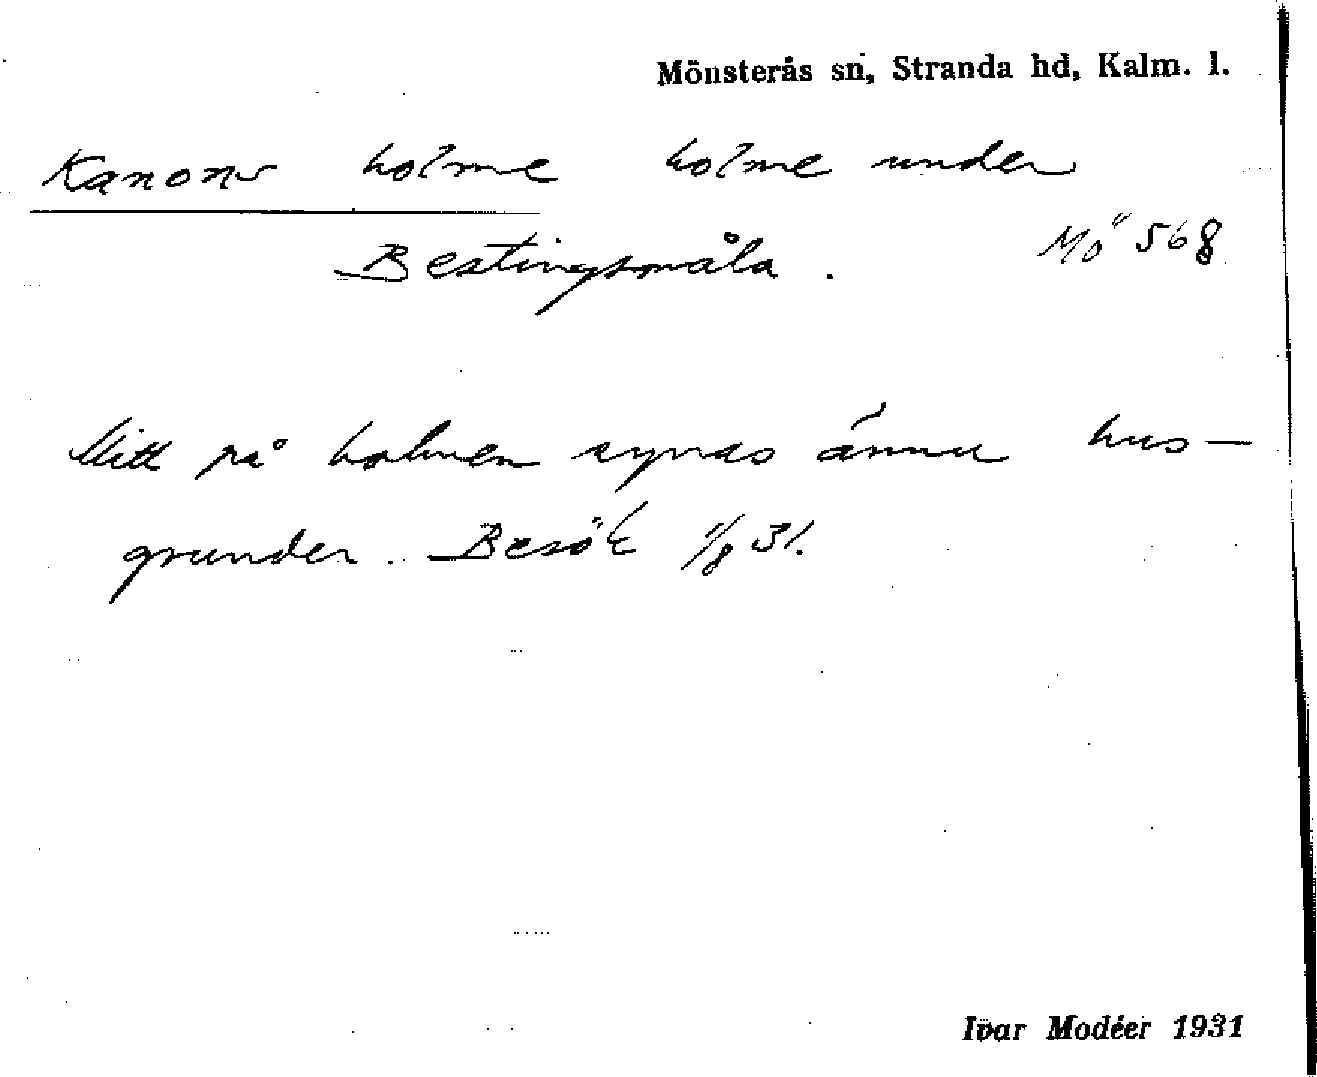 Mönsterås sn, Stranda hd, Kalm. l.
Kanons holme holme under
Bestingsmåla. Mö 568
Mitt på holmen synas ännu hus-
grunder. Besök 1/8 31.
Ivar Modéer 1931